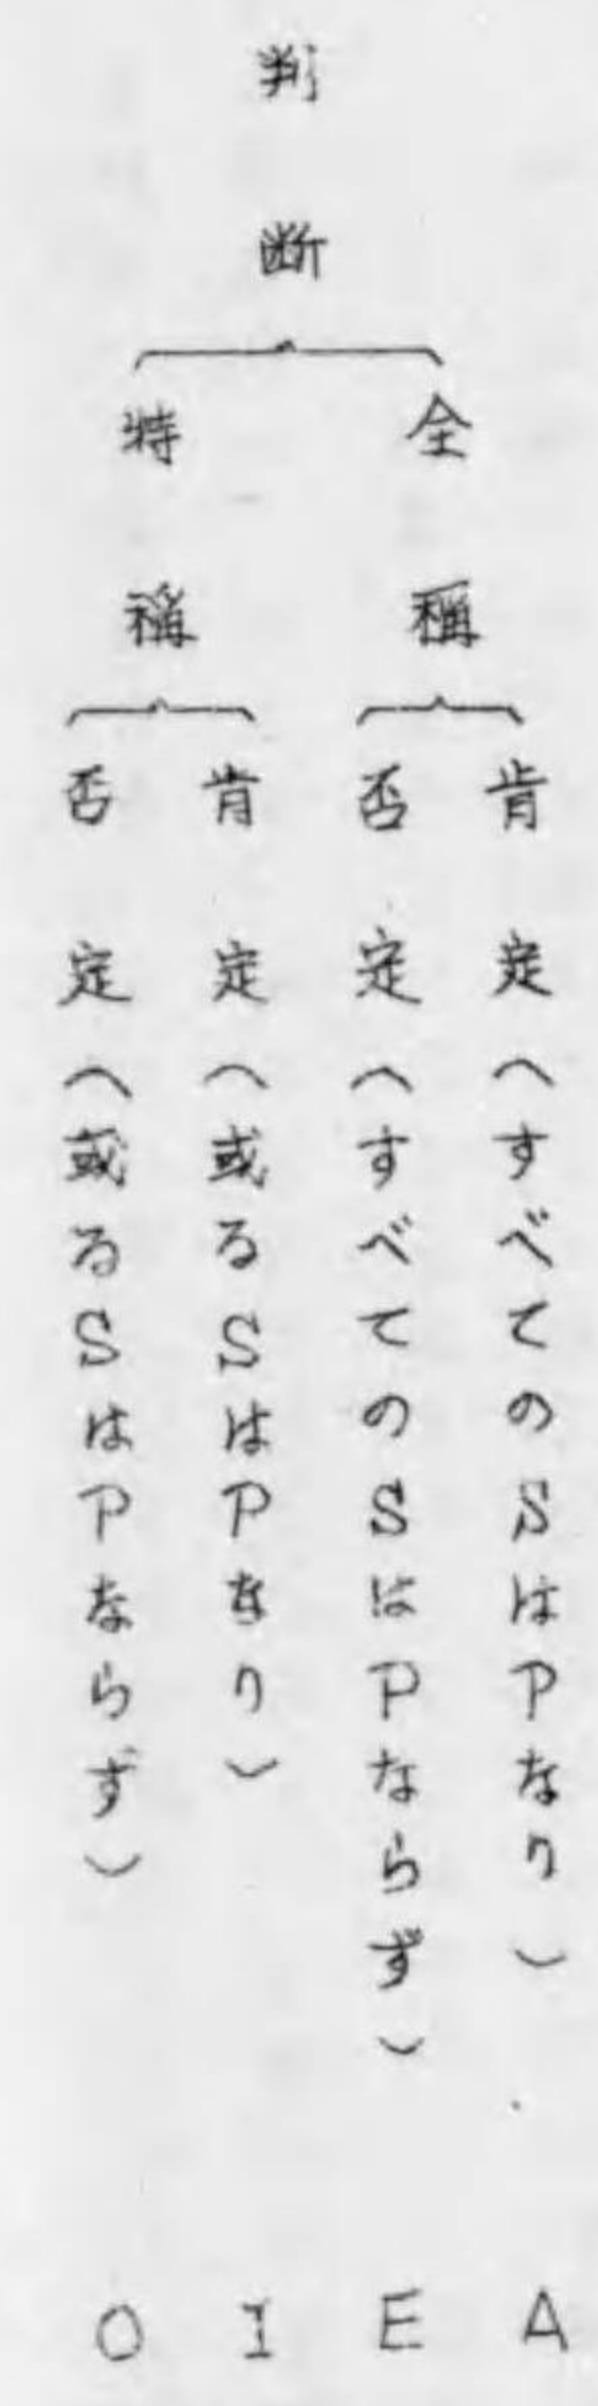 判断
全稱
肯定(すべてのSはPなり) A
否定(すべてのSはPならず) E
特稱
肯定(或るSはPなり) I
否定(或るSはPならず) O